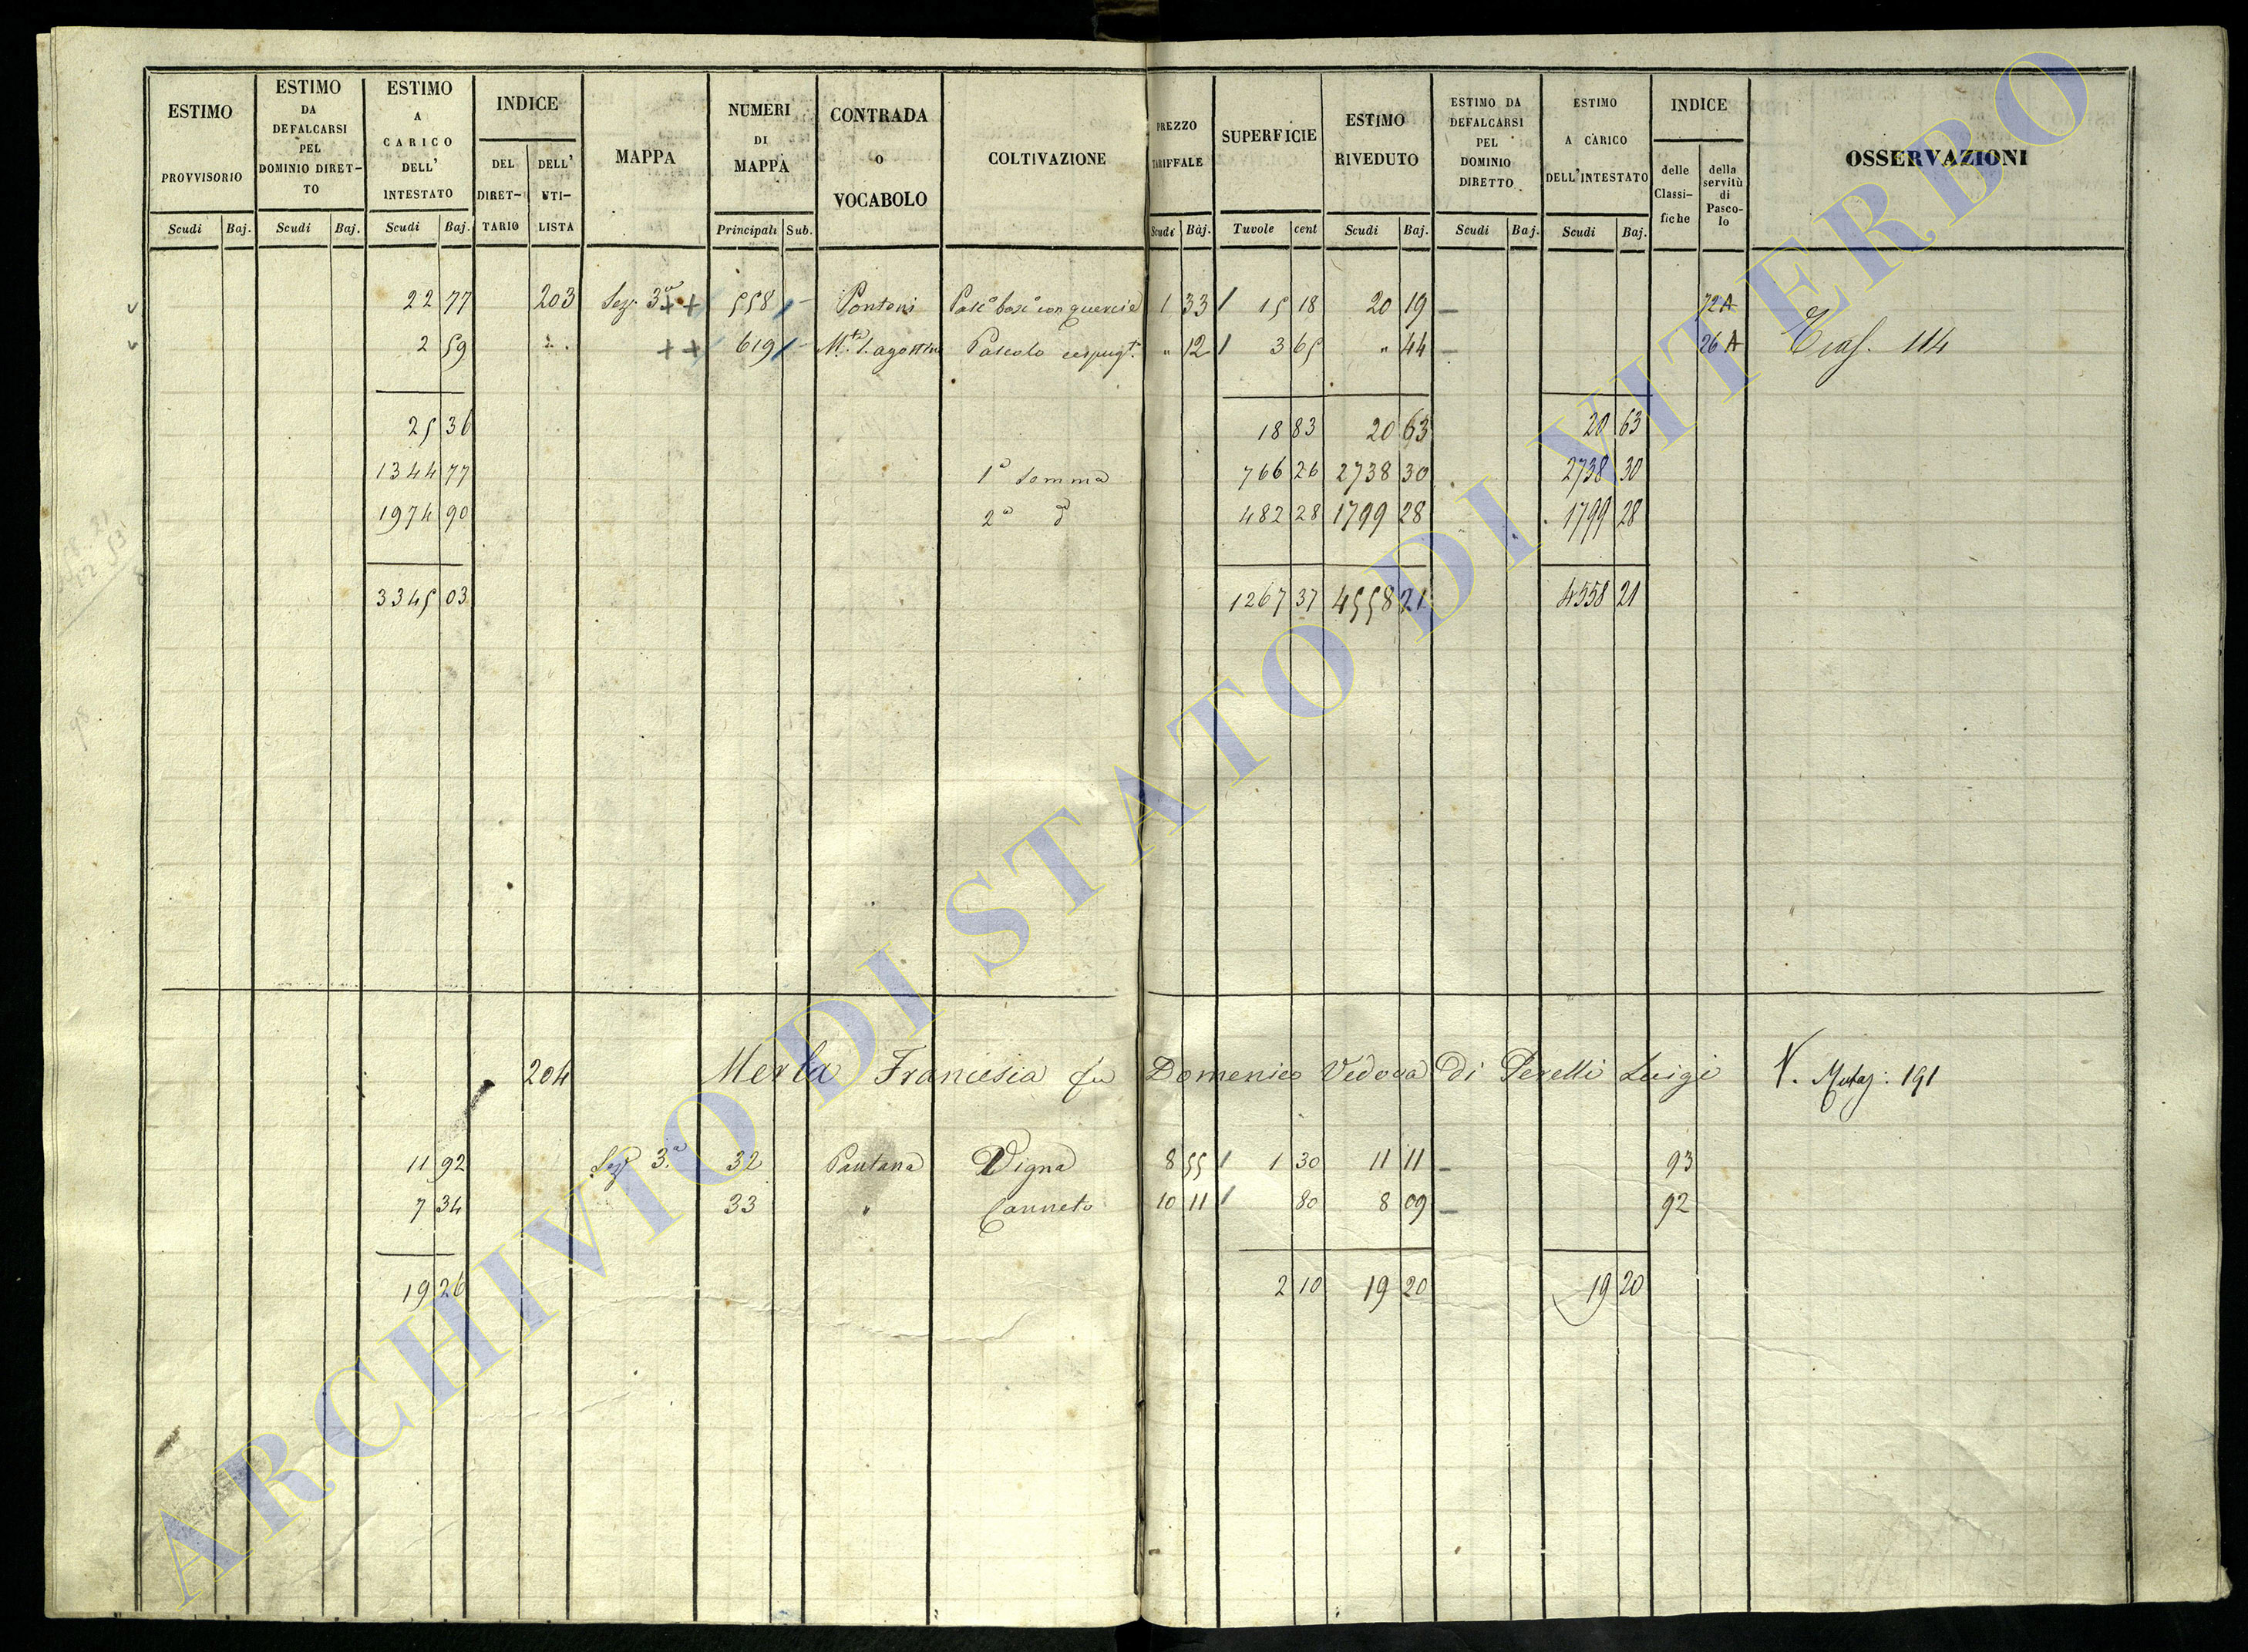 ESTIMO PROVVISORIO
ESTIMO DA DEFALCARSI PEL DOMINIO DIRETTO
ESTIMO A CARICO DELL' INTESTATO
INDICE
DEL DIRETTARIO
DELL' UTILISTA
MAPPA
NUMERI DI MAPPA
CONTRADA O VOCABOLO
COLTIVAZIONE
PREZZO TARIFFALE
SUPERFICIE
ESTIMO RIVEDUTO
ESTIMO DA DEFALCARSI PEL DOMINIO DIRETTO
ESTIMO A CARICO DELL'INTESTATO
INDICE
delle Classifiche
della servitù di Pascolo
OSSERVAZIONI
Scudi Baj. Scudi Baj. Scudi Baj. Principali Sub. Scudi Baj. Tuvole cent Scudi Baj. Scudi Baj. Scudi Baj.
22 77 203 Sez. 3ª ++ 558 Pontoni Pasc° bosc° con quercie 1 33 15 18 20 19 72 A
2 59 ++ 619 M.te S. agostino Pascolo cespug.to " 12 3 65 " 44 26 A Trasf. 114
25 36 18 83 20 63 20 63
1344 77 1ª Somma 766 26 2738 30 2738 30
1974 90 2ª d 482 28 1799 28 1799 28
3345 03 1267 37 4558 21 4558 21
98
204 Merla Francesca fu Domenico Vedova di Perelli Luigi V. Mutaz: 191
11 92 Sez 3.ª 32 Pantana Vigna 8 55 1 30 11 11 93
7 34 33 " Canneto 10 11 80 8 09 92
19 26 2 10 19 20 19 20
ARCHIVIO DI STATO DI VITERBO